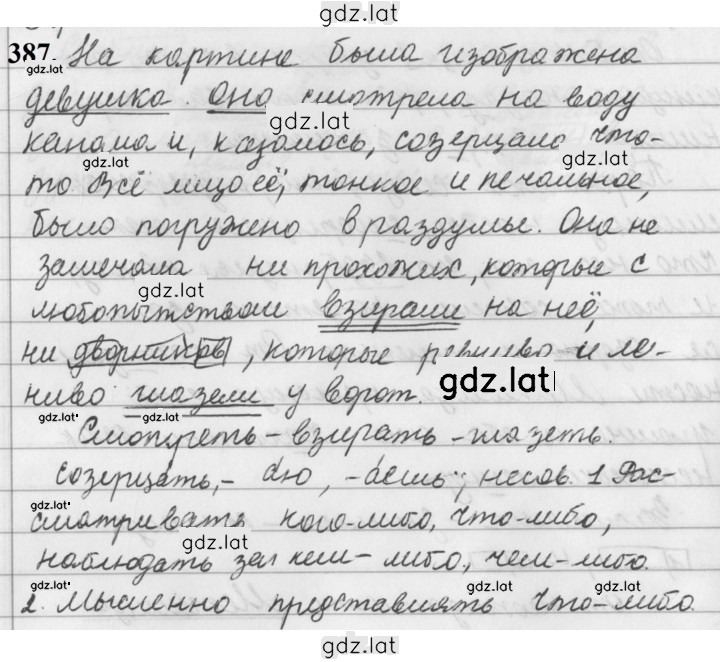 gdz.lat
387. На картине была изображена
gdz.lat
девушка. Она смотрела на воду
gdz.lat
канала и, казалось, созерцала что-
gdz.lat gdz.lat
то. Всё лицо её, тонкое и печальное,
было погружено в раздумье. Она не
замечала ни прохожих, которые с
gdz.lat
любопытством взирали на неё,
ни дворников, которые и ле-
gdz.lat
ниво глазели у ворот.
gdz.lat gdz.lat
Смотреть - взирать - глазеть.
созерцать, - аю, - аешь; несов. 1. Рас-
gdz.lat
сматривать кого-либо, что-либо,
gdz.lat
наблюдать за кем-либо, чем-либо.
gdz.lat gdz.lat
2. Мысленно представлять что-либо.
gdz.lat